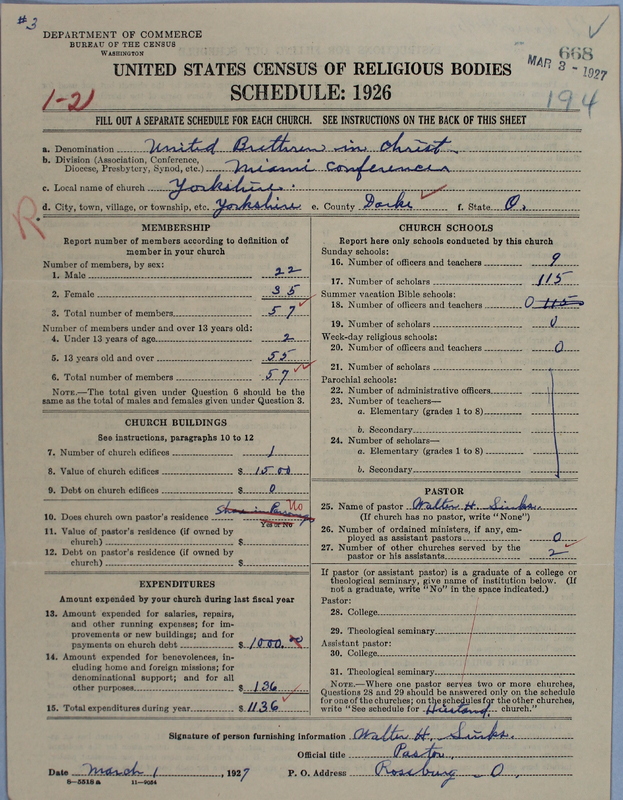 #3
DEPARTMENT OF COMMERCE
BUREAU OF THE CENSUS
WASHINGTON
668
MAR 3 - 1927
UNITED STATES CENSUS OF RELIGIOUS BODIES
SCHEDULE: 1926
1-21
194
FILL OUT A SEPARATE SCHEDULE FOR EACH CHURCH. SEE INSTRUCTIONS ON THE BACK OF THIS SHEET
a. Denomination United Brethren in Christ
b. Division (Association, Conference, Diocese, Presbytery, Synod, etc.) Miami Conference
c. Local name of church Yorkshire
d. City, town, village, or township, etc. Yorkshire e. County Darke f. State O.
R
MEMBERSHIP
Report number of members according to definition of
member in your church
Number of members, by sex:
1. Male 22
2. Female 35
3. Total number of members 57
Number of members under and over 13 years old:
4. Under 13 years of age 2
5. 13 years old and over 55
6. Total number of members 57
NOTE.—The total given under Question 6 should be
same as the total of males and females given under Question 3.
CHURCH BUILDINGS
See instructions, paragraphs 10 to 12
7. Number of church edifices 1
8. Value of church edifices $ 1500
9. Debt on church edifices $ 0
10. Does church own pastor's residence No
Yes or No
11. Value of pastor's residence (if owned by
church) $
12. Debt on pastor's residence (if owned by
church) $
EXPENDITURES
Amount expended by your church during last fiscal year
13. Amount expended for salaries, repairs,
and other running expenses; for im-
provements or new buildings; and for
payments on church debt $ 1000.
14. Amount expended for benevolences, in-
cluding home and foreign missions; for
denominational support; and for all
other purposes $ 136
15. Total expenditures during year $ 1136
CHURCH SCHOOLS
Report here only schools conducted by this church
Sunday schools:
16. Number of officers and teachers 9
17. Number of scholars 115
Summer vacation Bible schools:
18. Number of officers and teachers 0 115
19. Number of scholars 0
Week-day religious schools:
20. Number of officers and teachers 0
21. Number of scholars
Parochial schools:
22. Number of administrative officers
23. Number of teachers—
a. Elementary (grades 1 to 8)
b. Secondary
24. Number of scholars—
a. Elementary (grades 1 to 8)
b. Secondary
PASTOR
25. Name of pastor Walter H. Sinks
(If church has no pastor, write "None")
26. Number of ordained ministers, if any, em-
ployed as assistant pastors 0
27. Number of other churches served by the
pastor or his assistants 2
If pastor (or assistant pastor) is a graduate of a college or
theological seminary, give name of institution below. (If
not a graduate, write "No" in the space indicated.)
Pastor:
28. College
29. Theological seminary
Assistant pastor:
30. College
31. Theological seminary
NOTE.—Where one pastor serves two or more churches,
Questions 28 and 29 should be answered only on the schedule
for one of the churches; on the schedules for the other churches,
write "See schedule for Hiestand church."
Signature of person furnishing information Walter H. Sinks.
Official title Pastor.
Date March 1, 1927 P. O. Address Rossburg O.
8—5518 a 11—9054